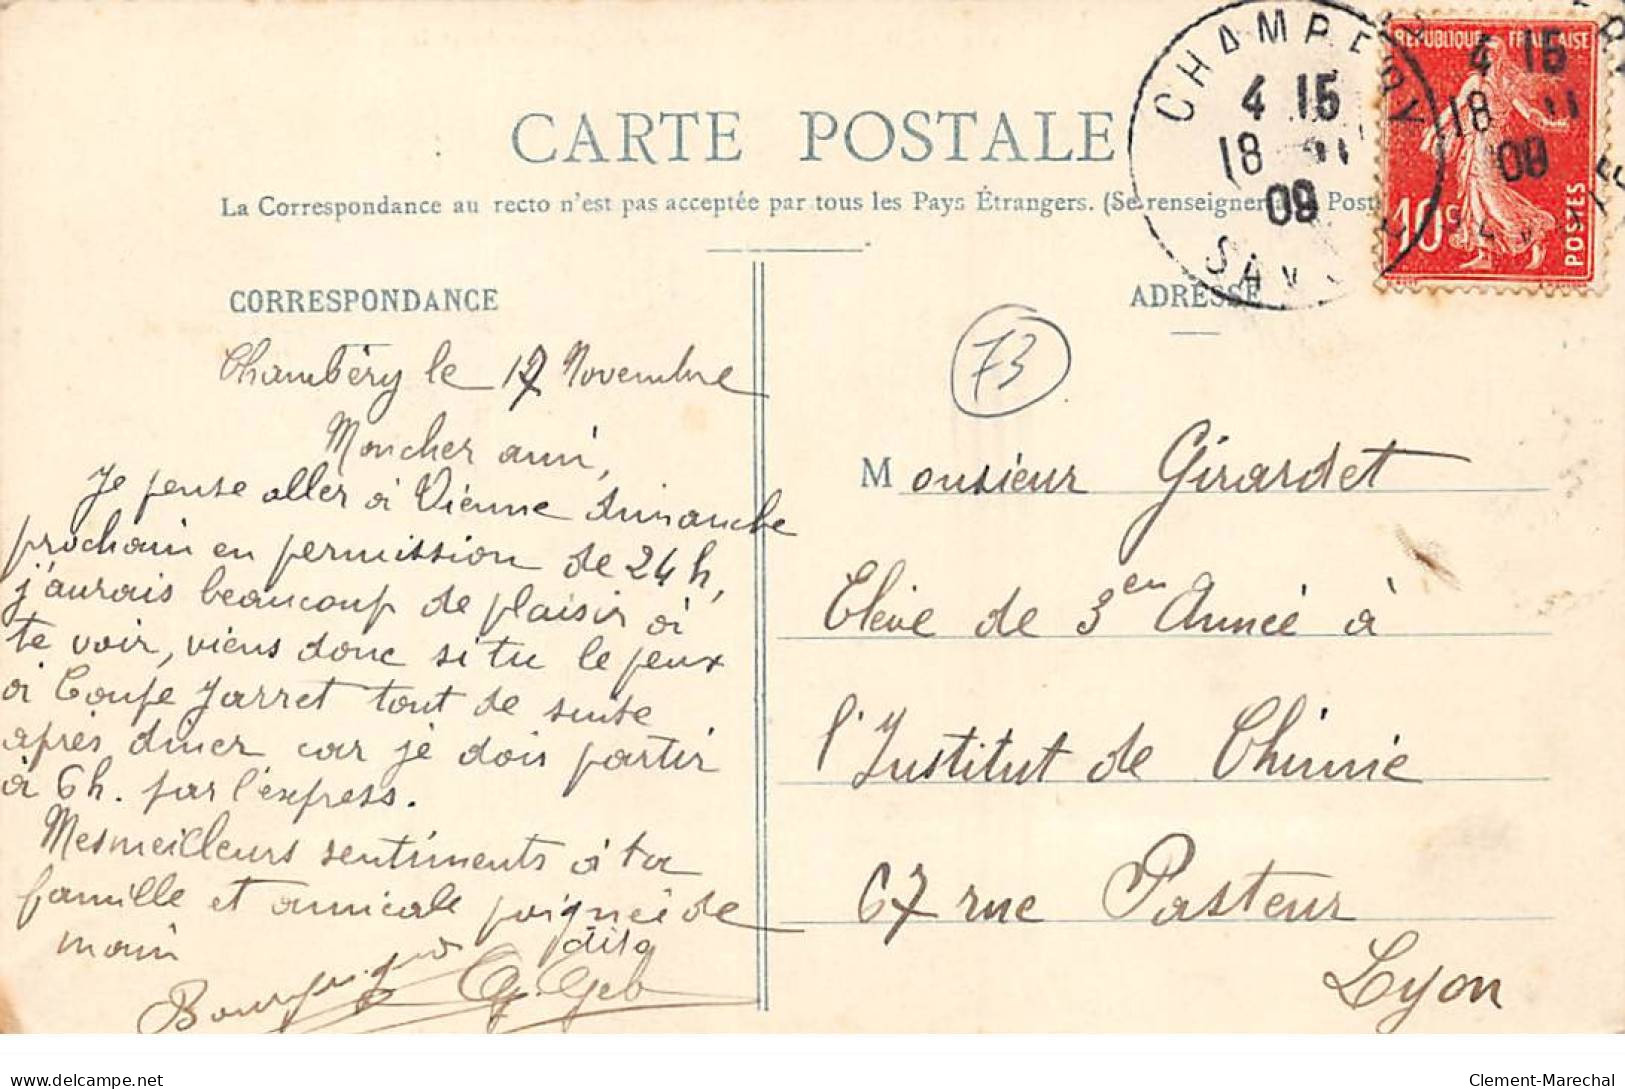 CARTE POSTALE
La Correspondance au recto n'est pas acceptée par tous les Pays Étrangers. (Se renseigner à la Poste
CORRESPONDANCE
Chambéry le 17 Novembre
Moncher ami,
Je pense aller à Vienne dimanche
prochain en permission de 24 h,
j'aurais beaucoup de plaisir à
te voir, viens donc si tu le peux
à Coupe Jarret tout de suite
après diner car je dois partir
à 6h. par l'express.
Mes meilleurs sentiments à ta
famille et amicale poignée de
main
CHAMBERY
4 15
18 11
09
SAVOIE
REPUBLIQUE FRANÇAISE
10c
POSTES
4 15
18 11
09
ADRESSE
73
Monsieur Girardet
Elève de 3en Année à
l'Institut de Chimie
67 rue Pasteur
Lyon
delcampe.net
Clement-Marechal